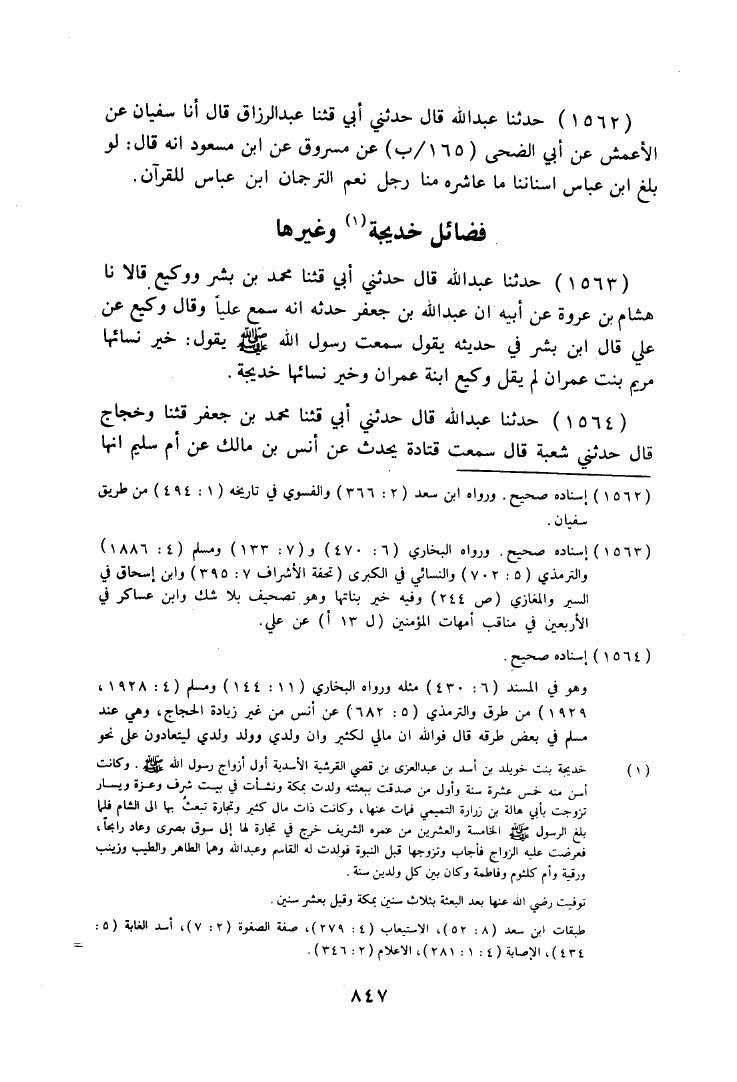 (١٥٦٢) حدثنا عبدالله قال حدثني أبي قثنا عبدالرزاق قال أنا سفيان عن
الأعمش عن أبي الضحى (١٦٥/ب) عن مسروق عن ابن مسعود انه قال: لو
بلغ ابن عباس اسناننا ما عاشره منا رجل نعم الترجمان ابن عباس للقرآن.
فضائل خديجة(١) وغيرها
(١٥٦٣) حدثنا عبدالله قال حدثني أبي قثنا محمد بن بشر ووكيع قالا نا
هشام بن عروة عن أبيه ان عبدالله بن جعفر حدثه انه سمع علياً وقال وكيع عن
علي قال ابن بشر في حديثه يقول سمعت رسول الله ﷺ يقول: خير نسائها
مريم بنت عمران لم يقل وكيع ابنة عمران وخير نسائها خديجة.
(١٥٦٤) حدثنا عبدالله قال حدثني أبي قثنا محمد بن جعفر قثنا وحجاج
قال حدثني شعبة قال سمعت قتادة يحدث عن أنس بن مالك عن أم سليم انها
(١٥٦٢) إسناده صحيح. ورواه ابن سعد (٢: ٣٦٦) والفسوي في تاريخه (١: ٤٩٤) من طريق
سفيان.
(١٥٦٣) إسناده صحيح. ورواه البخاري (٦: ٤٧٠) و(٧: ١٣٣) ومسلم (٤: ١٨٨٦)
والترمذي (٥: ٧٠٢) والنسائي في الكبرى (تحفة الأشراف ٧: ٣٩٥) وابن إسحاق في
السير والمغازي (ص ٢٤٤) وفيه خير بناتها وهو تصحيف بلا شك وابن عساكر في
الأربعين في مناقب أمهات المؤمنين (ل ١٣ أ) عن علي.
(١٥٦٤) إسناده صحيح.
وهو في المسند (٦: ٤٣٠) مثله ورواه البخاري (١١: ١٤٤) ومسلم (٤: ١٩٢٨،
١٩٢٩) من طرق والترمذي (٥: ٦٨٢) عن أنس من غير زيادة الحجاج، وهي عند
مسلم في بعض طرقه قال فوالله ان مالي لكثير وان ولدي وولد ولدي ليتعادون على نحو
(١) خديجة بنت خويلد بن أسد بن عبدالعزى بن قصي القرشية الأسدية أول أزواج رسول الله ﷺ. وكانت
أسن منه خمس عشرة سنة وأول من صدقت ببعثته ولدت بمكة ونشأت في بيت شرف وعزة ويسار
تزوجت بأبي هالة بن زرارة التميمي فمات عنها، وكانت ذات مال كثير وتجارة تبعث بها الى الشام فلما
بلغ الرسول ﷺ الخامسة والعشرين من عمره الشريف خرج في تجارة لها إلى سوق بصرى وعاد رابحاً،
فعرضت عليه الزواج فأجاب وتزوجها قبل النبوة فولدت له القاسم وعبدالله وهما الطاهر والطيب وزينب
ورقية وأم كلثوم وفاطمة وكان بين كل ولدين سنة.
توفيت رضي الله عنها بعد البعثة بثلاث سنين بمكة وقيل بعشر سنين.
طبقات ابن سعد (٨: ٥٢)، الاستيعاب (٤: ٢٧٩)، صفة الصفوة (٢: ٧)، أسد الغابة (٥:
٤٣٤)، الإصابة (٤: ١: ٢٨١)، الاعلام (٢: ٣٤٦).
=
٨٤٧